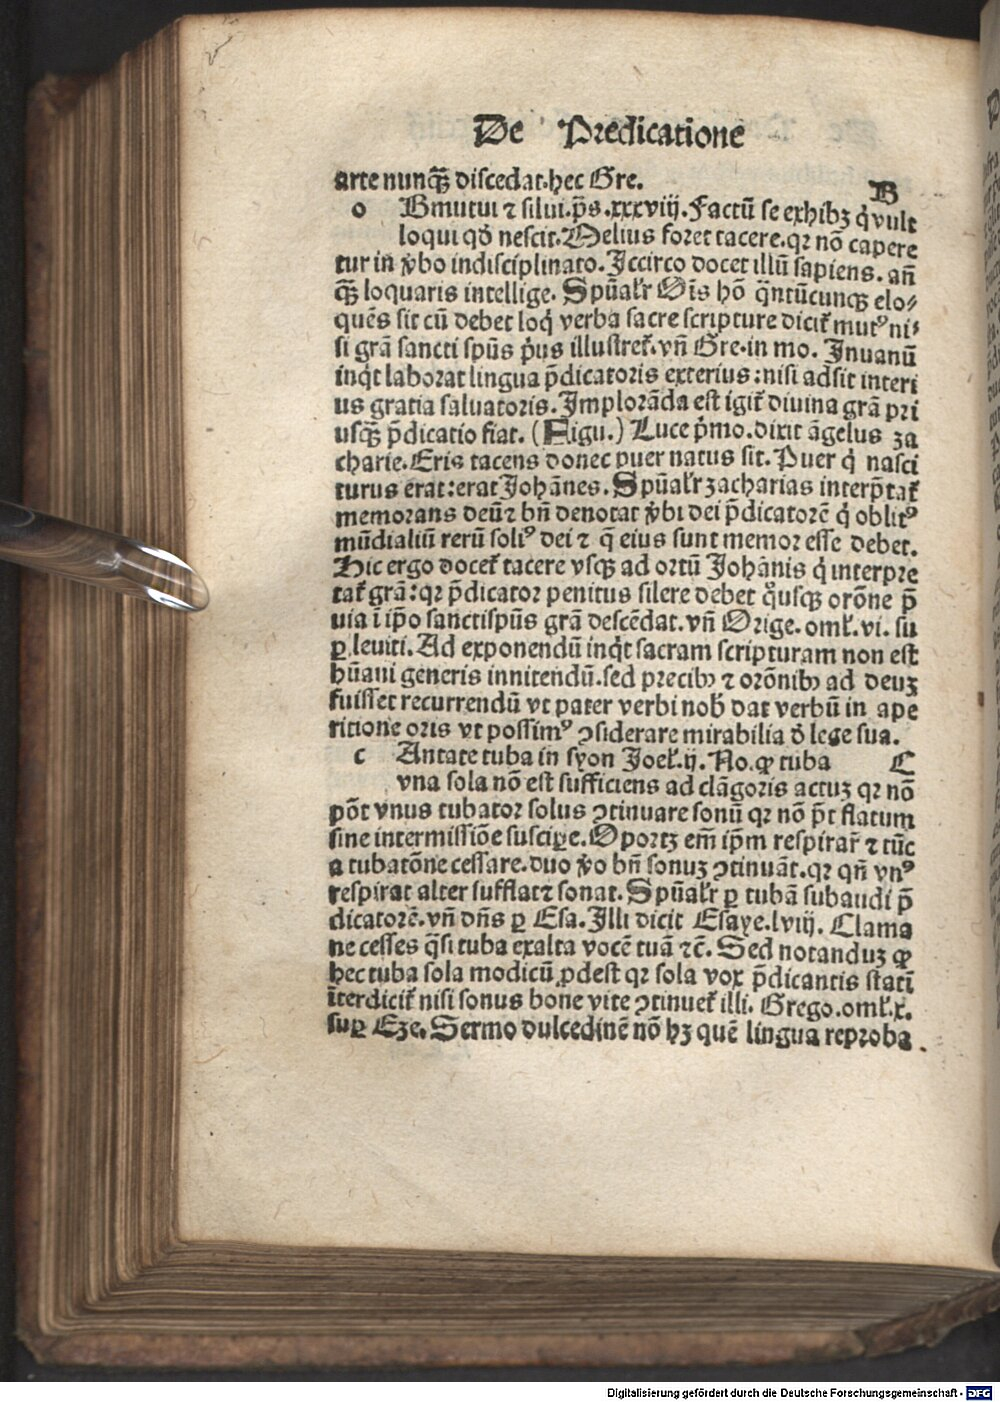 De Predicatione
arte nunqꝫ̄ discedat.hec Gre.
B
o Bmutui ⁊ silui.p̄s.xxxviij.Factū se exhibꝫ q̇ vult
loqui qð nescit.Melius foret tacere.qꝛ nō capere
tur in v̄bo indisciplinato.Iccirco docet illū sapiens. añ
qꝫ̄ loquaris intellige. Spūalr̄ Oīs hō q̈ntūcunqꝫ elo⸗
quēs sit cū debet loq̇ verba sacre scripture dicit᷑ mutꝰ ni⸗
si grā sancti spūs ṗus illustret᷑.vñ Gre.in mo. Inuanū
inq̇t laborat lingua p̄dicatoris exterius:nisi adsit interi
us gratia saluatoris.Implorāda est igit᷑ diuina grā pri
usqꝫ̄ p̄dicatio fiat. (Figu.) Luce ṗmo.dixit āgelus za
charie.Eris tacens donec puer natus sit.Puer q̇ nasci
turus erat:erat Johānes.Spūalr̄ zacharias interp̄tat᷑
memorans deū⁊ bñ denotat v̄bi dei p̄dicatorē q̇ oblitꝰ
mūdialiū rerū soliꝰ dei ⁊ q̄ eius sunt memor esse debet.
Hic ergo docet᷑ tacere vsqꝫ ad ortū Johānis q̇ interpre
tat᷑ grā:qꝛ p̄dicator penitus silere debet q̊usqꝫ orōne p̄
uia ī ip̄o sanctispūs grā descēdat.vñ Orige.oml̄.vi. su
ꝑ leuiti.Ad exponendū inq̇t sacram scripturam non est
hūani generis innitendū.sed precibꝰ ⁊ orōnibꝰ ad deuꝫ
fuisset recurrendū vt pater verbi nob̄ dat verbū in ape
ritione oris vt possimꝰ ꝯsiderare mirabilia ð lege sua.
c Antate tuba in syon Joel̄.ij. No.ꝙ tuba C
vna sola nō est sufficiens ad clāgoris actuꝫ qꝛ nō
pōt vnus tubator solus ꝯtinuare sonū qꝛ nō p̄t flatum
sine intermissiōe suscipe.Oportꝫ em̄ ip̄m respirar̄ ⁊ tūc
a tubatōne cessare.duo v̄o bñ sonuꝫ ꝯtinuāt.qꝛ qñ vnꝰ
respirat alter sufflat⁊ sonat.Spūalr̄ ꝑ tubā subaudi p̄
dicatorē.vñ dñs ꝑ Esa.Illi dicit Esaye.lviij. Clama
ne cesses q̈si tuba exalta vocē tuā ⁊c̄. Sed notanduꝫ ꝙ
hec tuba sola modicū ꝓdest qꝛ sola vox p̄dicantis statī
īterdicit᷑ nisi sonus bone vite ꝯtinuet᷑ illi. Grego.oml̄.x.
suꝑ Eze.Sermo dulcedinē nō hꝫ quē lingua reproba
Digitalisierung gefördert durch die Deutsche Forschungsgemeinschaft - DFG